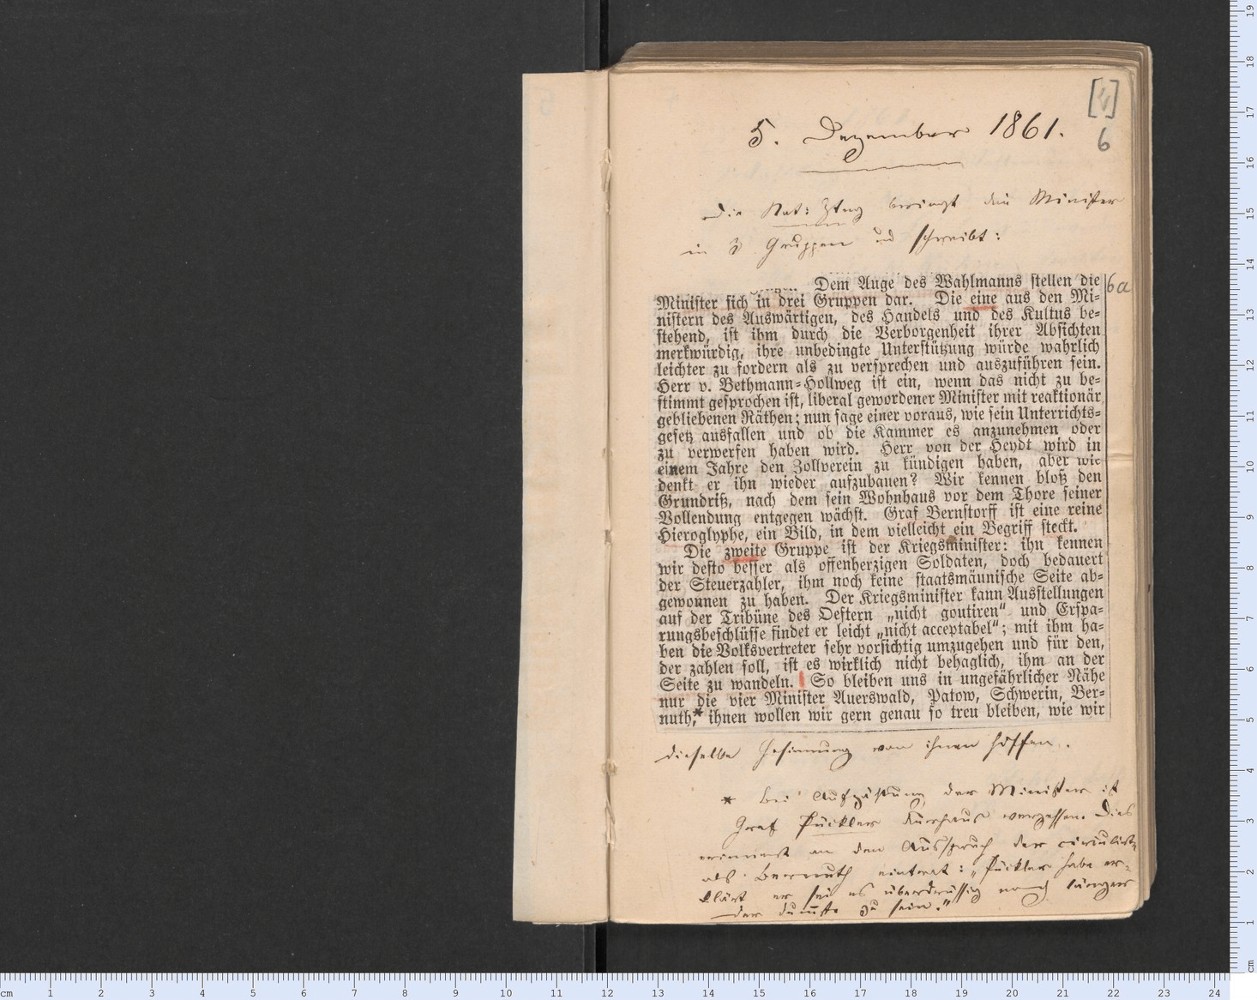 [4]
6
5. Dezember 1861.
Die Nat: Ztng bringt die Minister
in 3 Gruppen und schreibt:
6a
Dem Auge des Wahlmanns stellen die
Minister sich in drei Gruppen dar. Die eine aus den Mi-
nistern des Auswärtigen, des Handels und des Kultus be-
stehend, ist ihm durch die Verborgenheit ihrer Absichten
merkwürdig, ihre unbedingte Unterstützung würde wahrlich
leichter zu fordern als zu versprechen und auszuführen sein.
Herr v. Bethmann-Hollweg ist ein, wenn das nicht zu be-
stimmt gesprochen ist, liberal gewordener Minister mit reaktionär
gebliebenen Räthen; nun sage einer voraus, wie sein Unterrichts-
gesetz ausfallen und ob die Kammer es anzunehmen oder
zu verwerfen haben wird. Herr von der Heydt wird in
einem Jahre den Zollverein zu kündigen haben, aber wie
denkt er ihn wieder aufzubauen? Wir kennen bloß den
Grundriß, nach dem sein Wohnhaus vor dem Thore seiner
Vollendung entgegen wächst. Graf Bernstorff ist eine reine
Hieroglyphe, ein Bild, in dem vielleicht ein Begriff steckt.
Die zweite Gruppe ist der Kriegsminister: ihn kennen
wir desto besser als offenherzigen Soldaten, doch bedauert
der Steuerzahler, ihm noch keine staatsmännische Seite ab-
gewonnen zu haben. Der Kriegsminister kann Ausstellungen
auf der Tribüne des Oeftern „nicht goutiren“ und Erspa-
rungsbeschlüsse findet er leicht „nicht acceptabel“; mit ihm ha-
ben die Volksvertreter sehr vorsichtig umzugehen und für den,
der zahlen soll, ist es wirklich nicht behaglich, ihm an der
Seite zu wandeln. So bleiben uns in ungefährlicher Nähe
nur die vier Minister Auerswald, Patow, Schwerin, Ber-
nuth,* ihnen wollen wir gern genau so treu bleiben, wie wir
dieselbe Gesinnung von ihnen hoffen.
* Bei Aufzählung der Minister ist
Graf Pückler vergessen. Dies
erinnert an den Ausspruch der
als Bernuth eintrat: „Pückler habe er-
klärt er sei es überdrüssig noch länger
der Dümmste zu sein.“